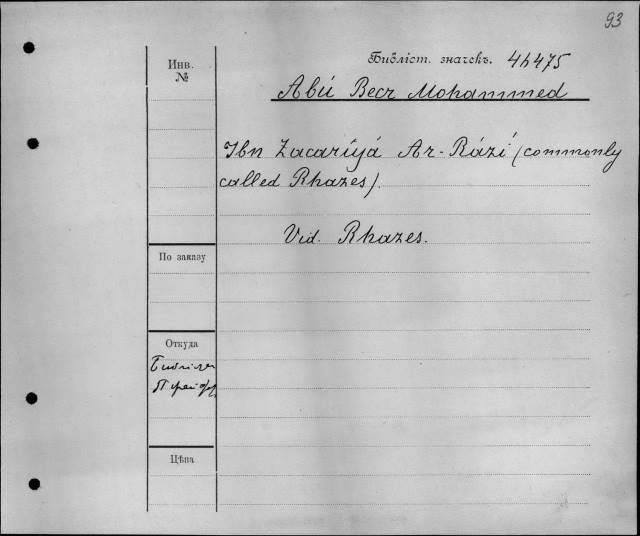 93
Библіот. значекъ. 44475
Abú Becr Mohammed
Инв.
№
Ibn Zacaríyá Ar-Rází (commonly
called Rhazes).
Vid. Rhazes.
По заказу
Откуда
Цѣна